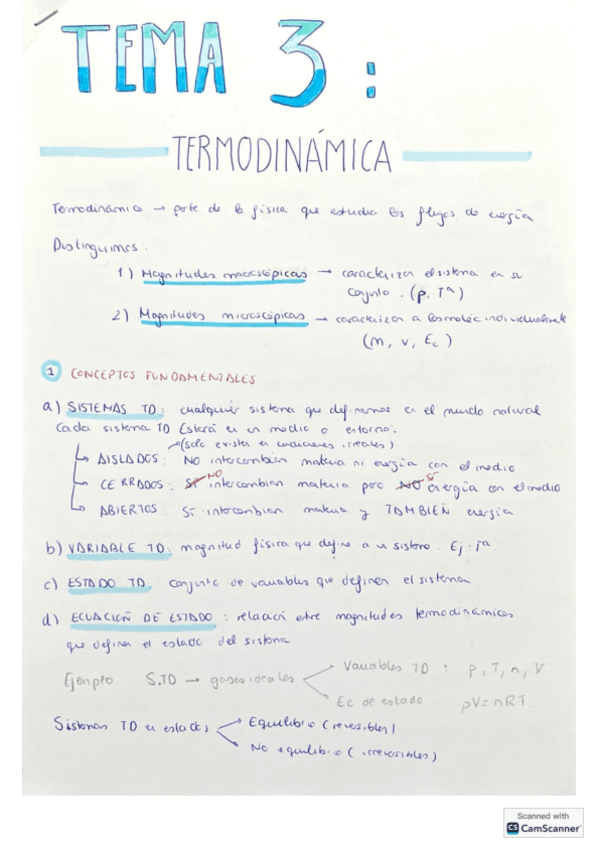 TEMA 3:
TERMODINÁMICA
Termodinámica → parte de la física que estudia los flujos de energía
Distinguimos:
1) Magnitudes macroscópicas → caracterizan el sistema en su
conjunto. (p, Tª)
2) Magnitudes microscópicas → caracterizan a las moléc individualmente
(m, v, Ec)
1 CONCEPTOS FUNDAMENTALES
a) SISTEMAS TD: cualquier sistema que definamos en el mundo natural
Cada sistema TD estará en un medio o entorno.
(solo existen en condiciones ideales)
↳ AISLADOS: NO intercambian materia ni energía con el medio
NO SÍ
↳ CERRADOS: SÍ intercambian materia pero NO energía con el medio
↳ ABIERTOS: SÍ intercambian materia y TAMBIÉN energía
b) VARIABLE TD: magnitud física que define a un sistema. Ej: Tª
c) ESTADO TD. Conjunto de variables que definen el sistema
d) ECUACIÓN DE ESTADO: relación entre magnitudes termodinámicas
que definen el estado del sistema
Variables TD: p, T, n, V
Ejemplo S.TD → gases ideales
Ec de estado. pV=nRT
Sistemas TD en estados → Equilibrio (reversibles)
→ No equilibrio (irreversibles)
Scanned with
CS CamScanner